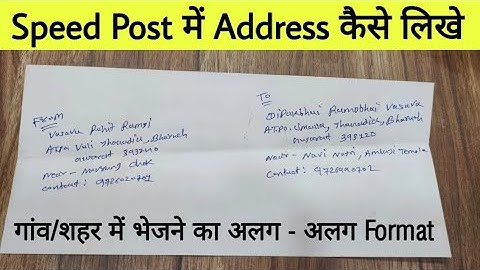 Speed Post में Address कैसे लिखे
From
Vasava Rohit Ramsi
Bharuch
Gujarat 393110
Near -
Contact: 9726020701
To
Dipakbhai Ramobhai Vasava
AT.Po. Umalla, Jhagadia, Bharuch
Gujarat 393120
Near - Navi Nagri, Ambaji Temple
Contact: 9726990702
गांव/शहर में भेजने का अलग - अलग Format